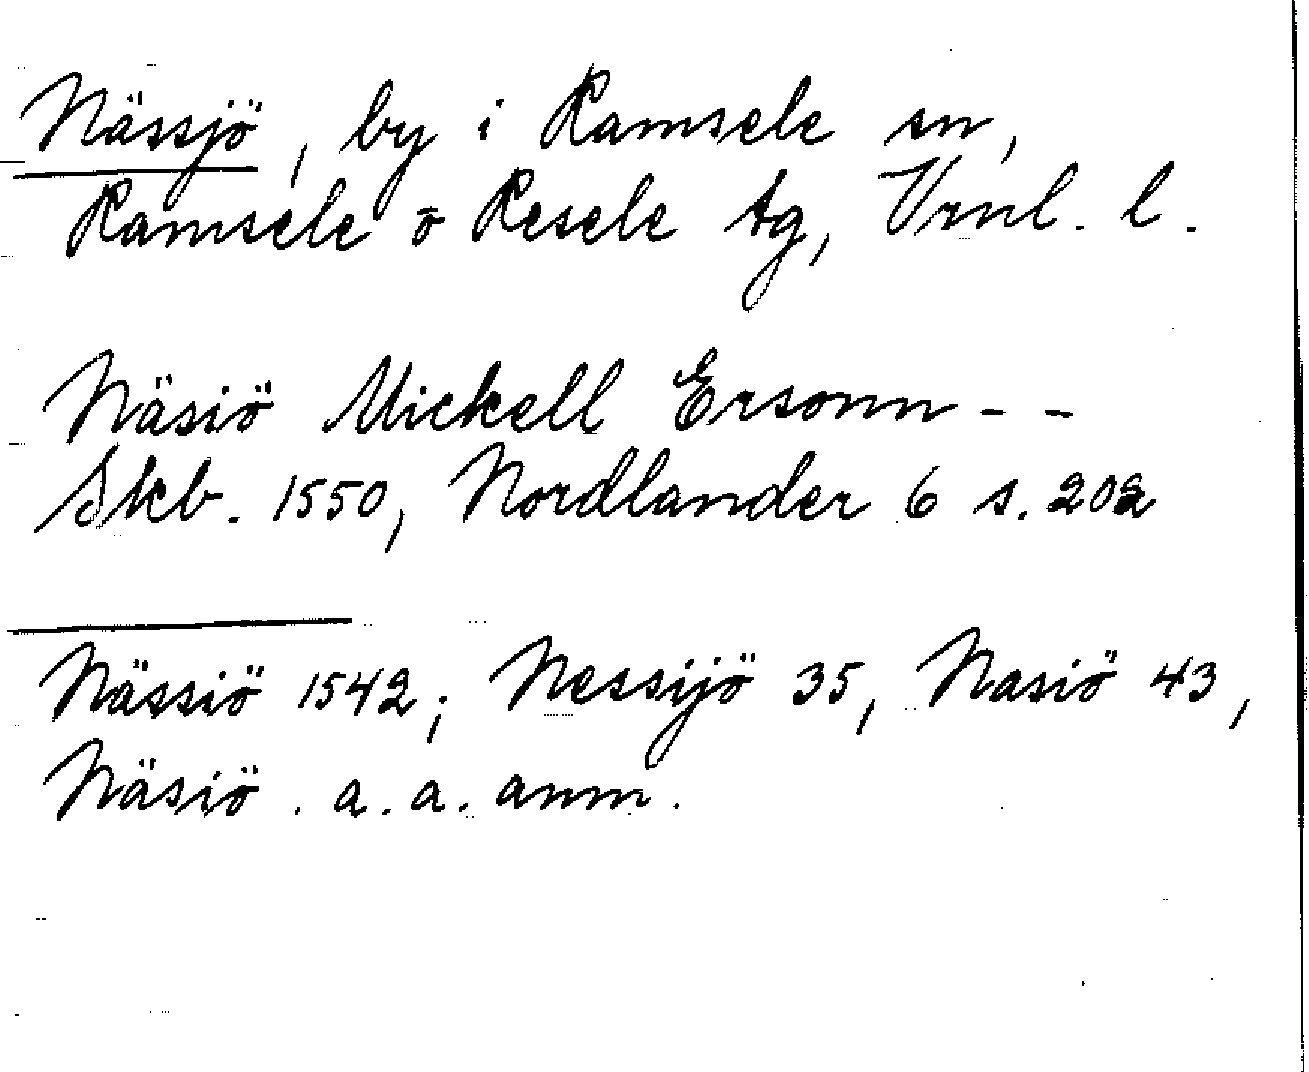 Nässjö, by i Ramsele sn,
Ramsele o Resele tg, Vrnl. l.
Näsiö Mickell Ersonn - -
Skb. 1550, Nordlander 6 s. 202
Nässiö 1542; Nessijö 35, Nasiö 43,
Näsiö. a. a. anm.